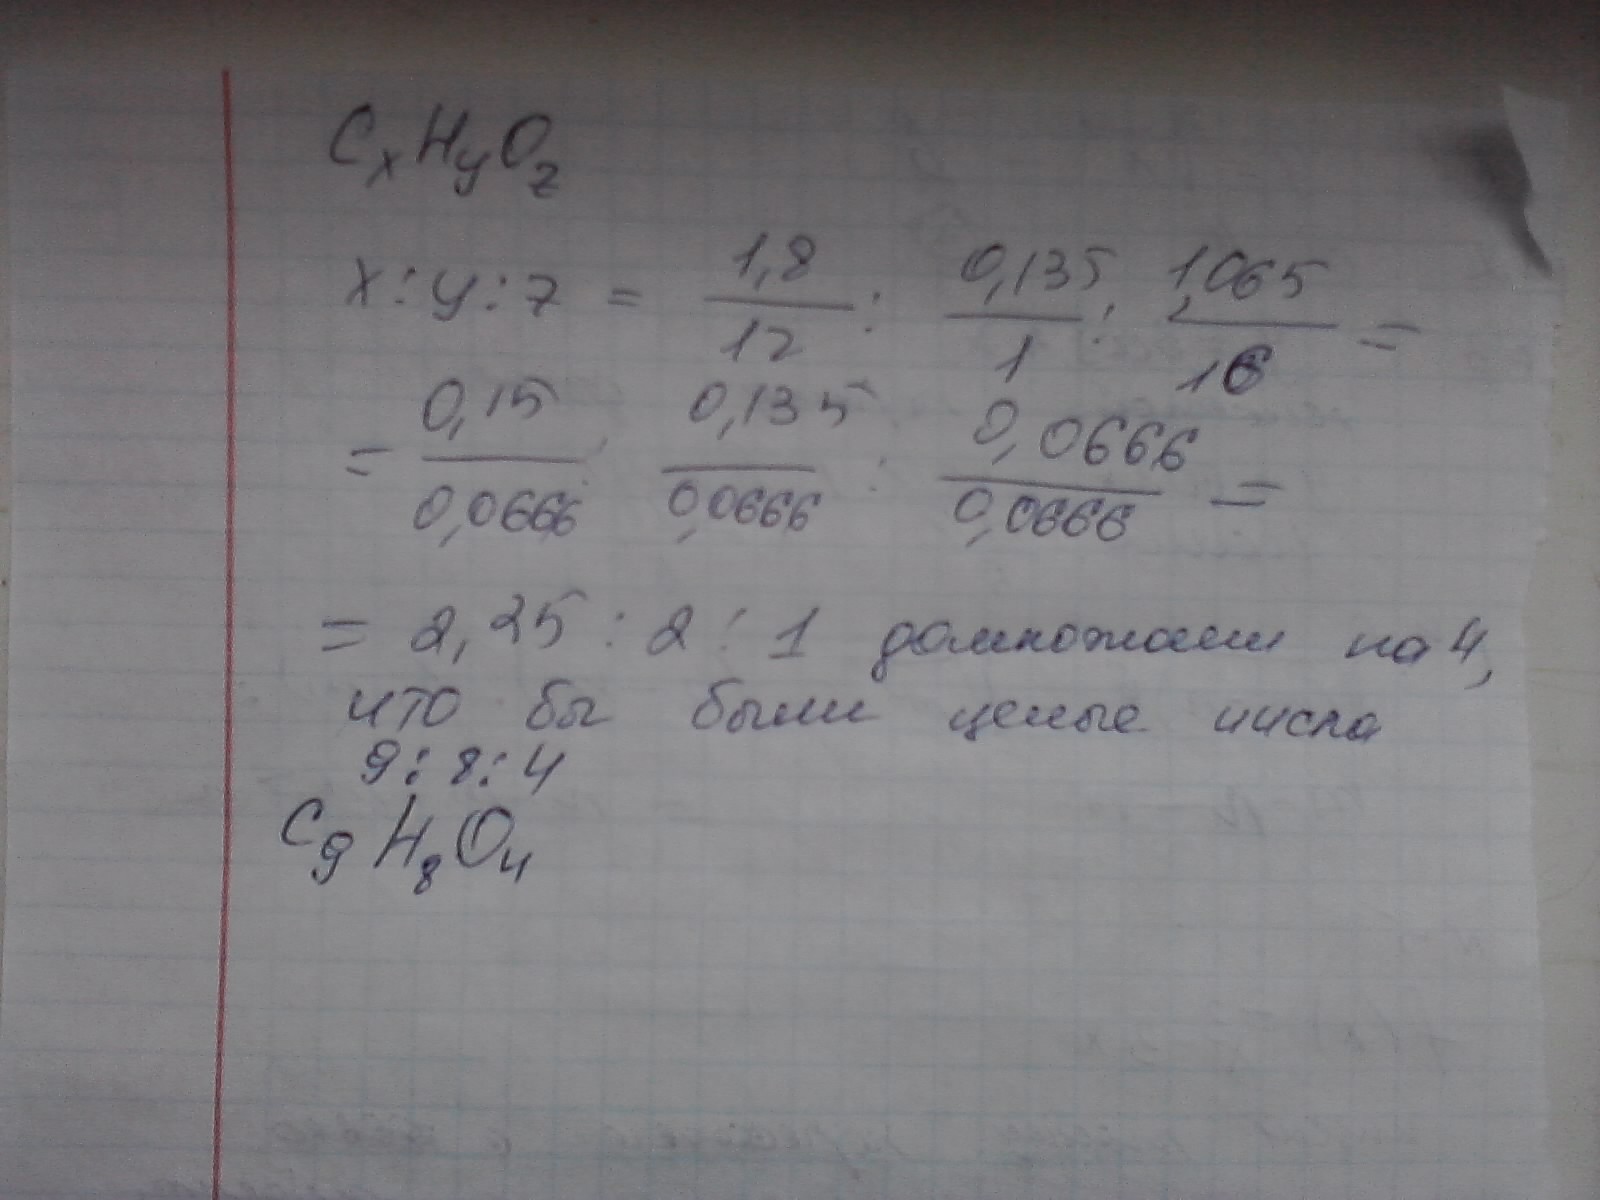 CxHyOz
x:y:z = 1,8/12 : 0,135/1 : 1,065/16 =
= 0,15/0,0666 : 0,135/0,0666 : 0,0666/0,0666 =
= 2,25 : 2 : 1 домножаем на 4,
что бы были целые числа
9:8:4
C9H8O4